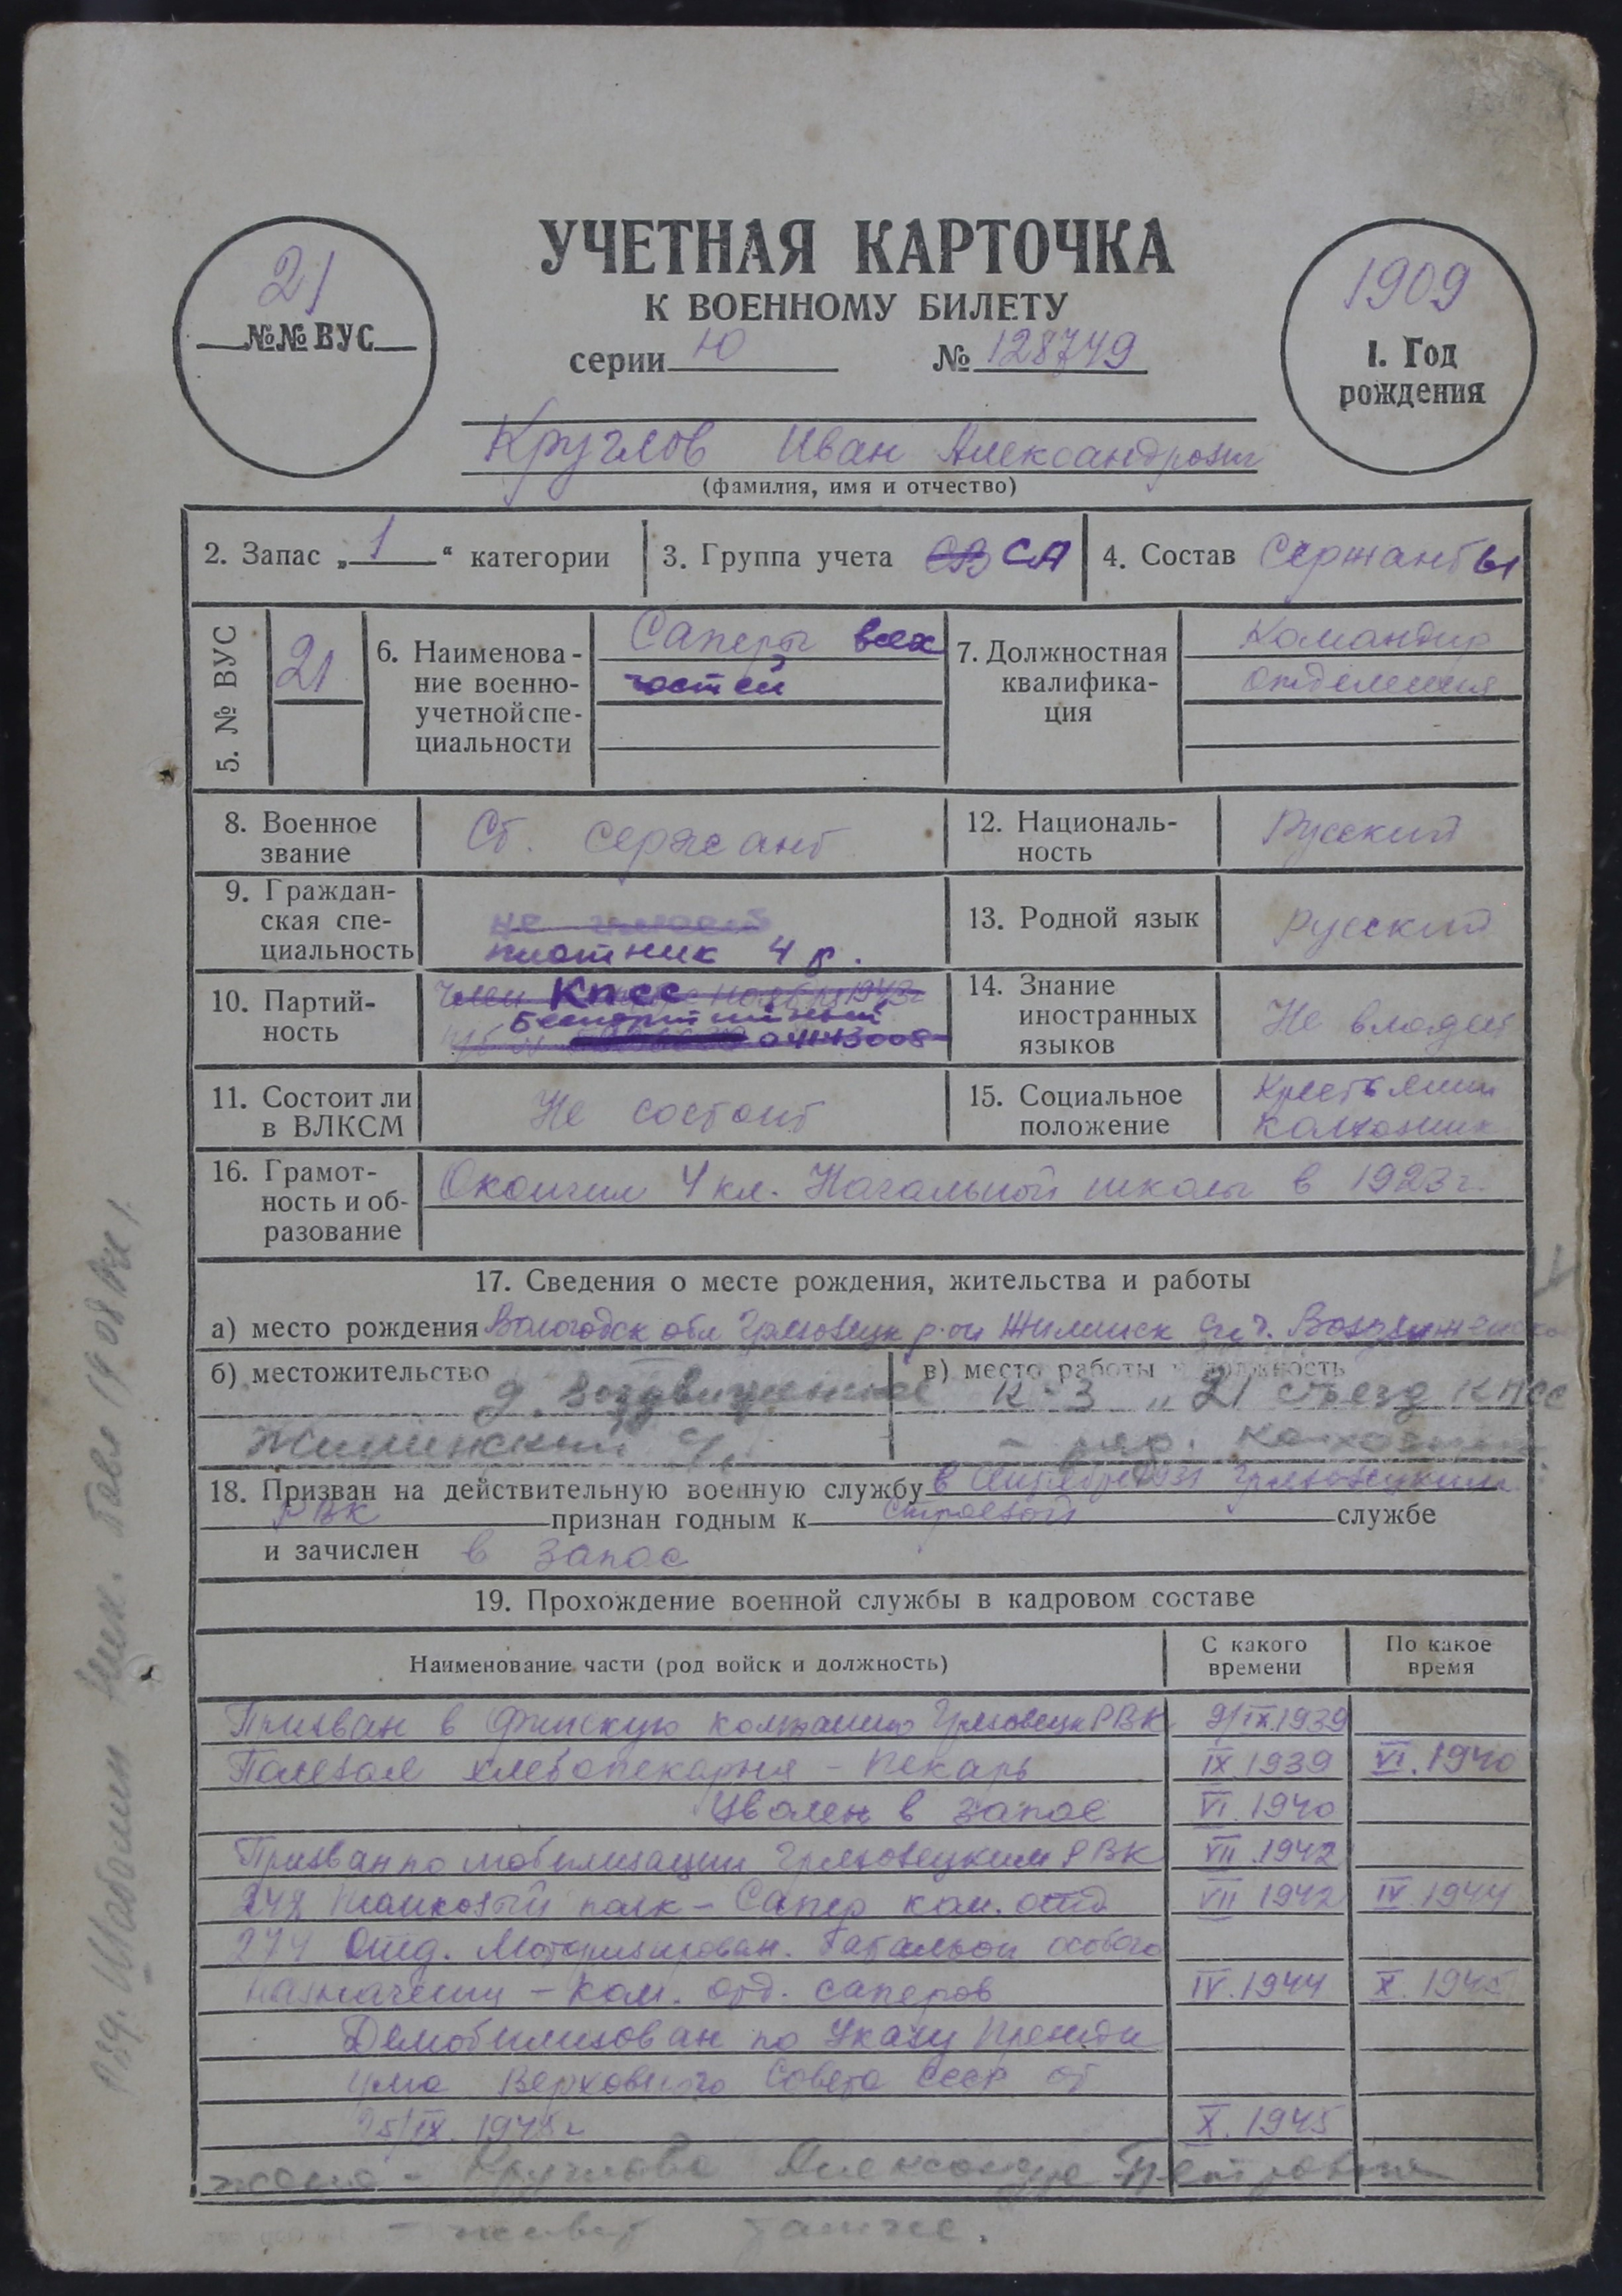 УЧЕТНАЯ КАРТОЧКА
К ВОЕННОМУ БИЛЕТУ
серии Ю № 128749
21
№№ ВУС
1909
1. Год
рождения
Круглов Иван Александрович
(фамилия, имя и отчество)
2. Запас „1“ категории
3. Группа учета СА
4. Состав Сержанты
5. № ВУС
21
6. Наименова-
ние военно-
учетной спе-
циальности
Саперы всех
частей
7. Должностная
квалифика-
ция
Командир
отделения
8. Военное
звание
Ст. сержант
9. Граждан-
ская спе-
циальность
плотник 4 р.
10. Партий-
ность
член КПСС с ноября 1943г
Беспартийный
04143008
11. Состоит ли
в ВЛКСМ
Не состоит
12. Националь-
ность
Русский
13. Родной язык
Русский
14. Знание
иностранных
языков
Не владеет
15. Социальное
положение
Крестьянин
колхозник
16. Грамот-
ность и об-
разование
Окончил 4 кл. Начальной школы в 1923г.
17. Сведения о месте рождения, жительства и работы
а) место рождения Вологодск обл Грязовецк р-он Жилинск
б) местожительство
д. Воздвиженское
Жилинский
в) место работы и должность
к-з „21 съезд КПСС
- ряд. колхозник
18. Призван на действительную военную службу в Грязовецким
РВК признан годным к строевой службе
и зачислен в запас
19. Прохождение военной службы в кадровом составе
Наименование части (род войск и должность)
С какого
времени
По какое
время
Призван в Финскую компанию Грязовецк РВК 9/IX.1939
Полевая хлебопекарня - пекарь IX.1939 VI.1940
Уволен в запас VI.1940
Призван по мобилизации Грязовецким РВК VII.1942
242 Танковый полк - Сапер ком. отд VII 1942 IV.1944
274 Отд. Моторизирован. Батальон особого
назначения - Ком. отд. саперов IV.1944 X.1945
Демобилизован по Указу Президи
ума Верховного Совета СССР от
25/IX.1945г X.1945
жена - Круглова Александра Петровна
- живет там же.